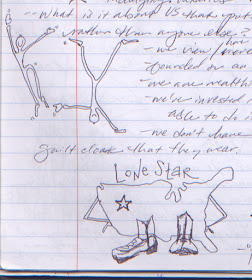 -- What is it about US that
rather than anyone else?
- we view / more
- founded on an
- we are wealthi
- we've invested
able to do i
- we don't have
guilt cloak that they wear.
LONE STAR